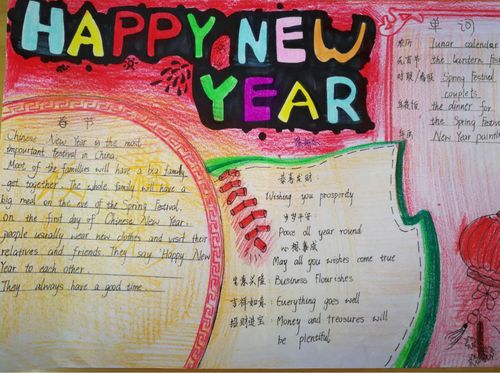 HAPPY NEW
YEAR
春节
Chinese New Year is the most
important festival in China.
Most of the families will have a big family
get together. The whole family will have a
big meal on the eve of the Spring Festival.
On the first day of Chinese New Year,
people usually wear new clothes and visit their
relatives and friends They say Happy New
Year to each other
They always have a good time
恭喜发财
Wishing you prosperity
岁岁平安
Peace all year round
心想事成
May all you wishes come true
生意兴隆: Business Flourishes
吉祥如意: Everything goes well
招财进宝: Money and treasures will
be plentiful
单词
农历 lunar calendar
元宵节 the Lantern Fest
对联/春联 Spring Festival
couplets
年夜饭 the dinner for
the Spring Festiva
年画 New Year painti